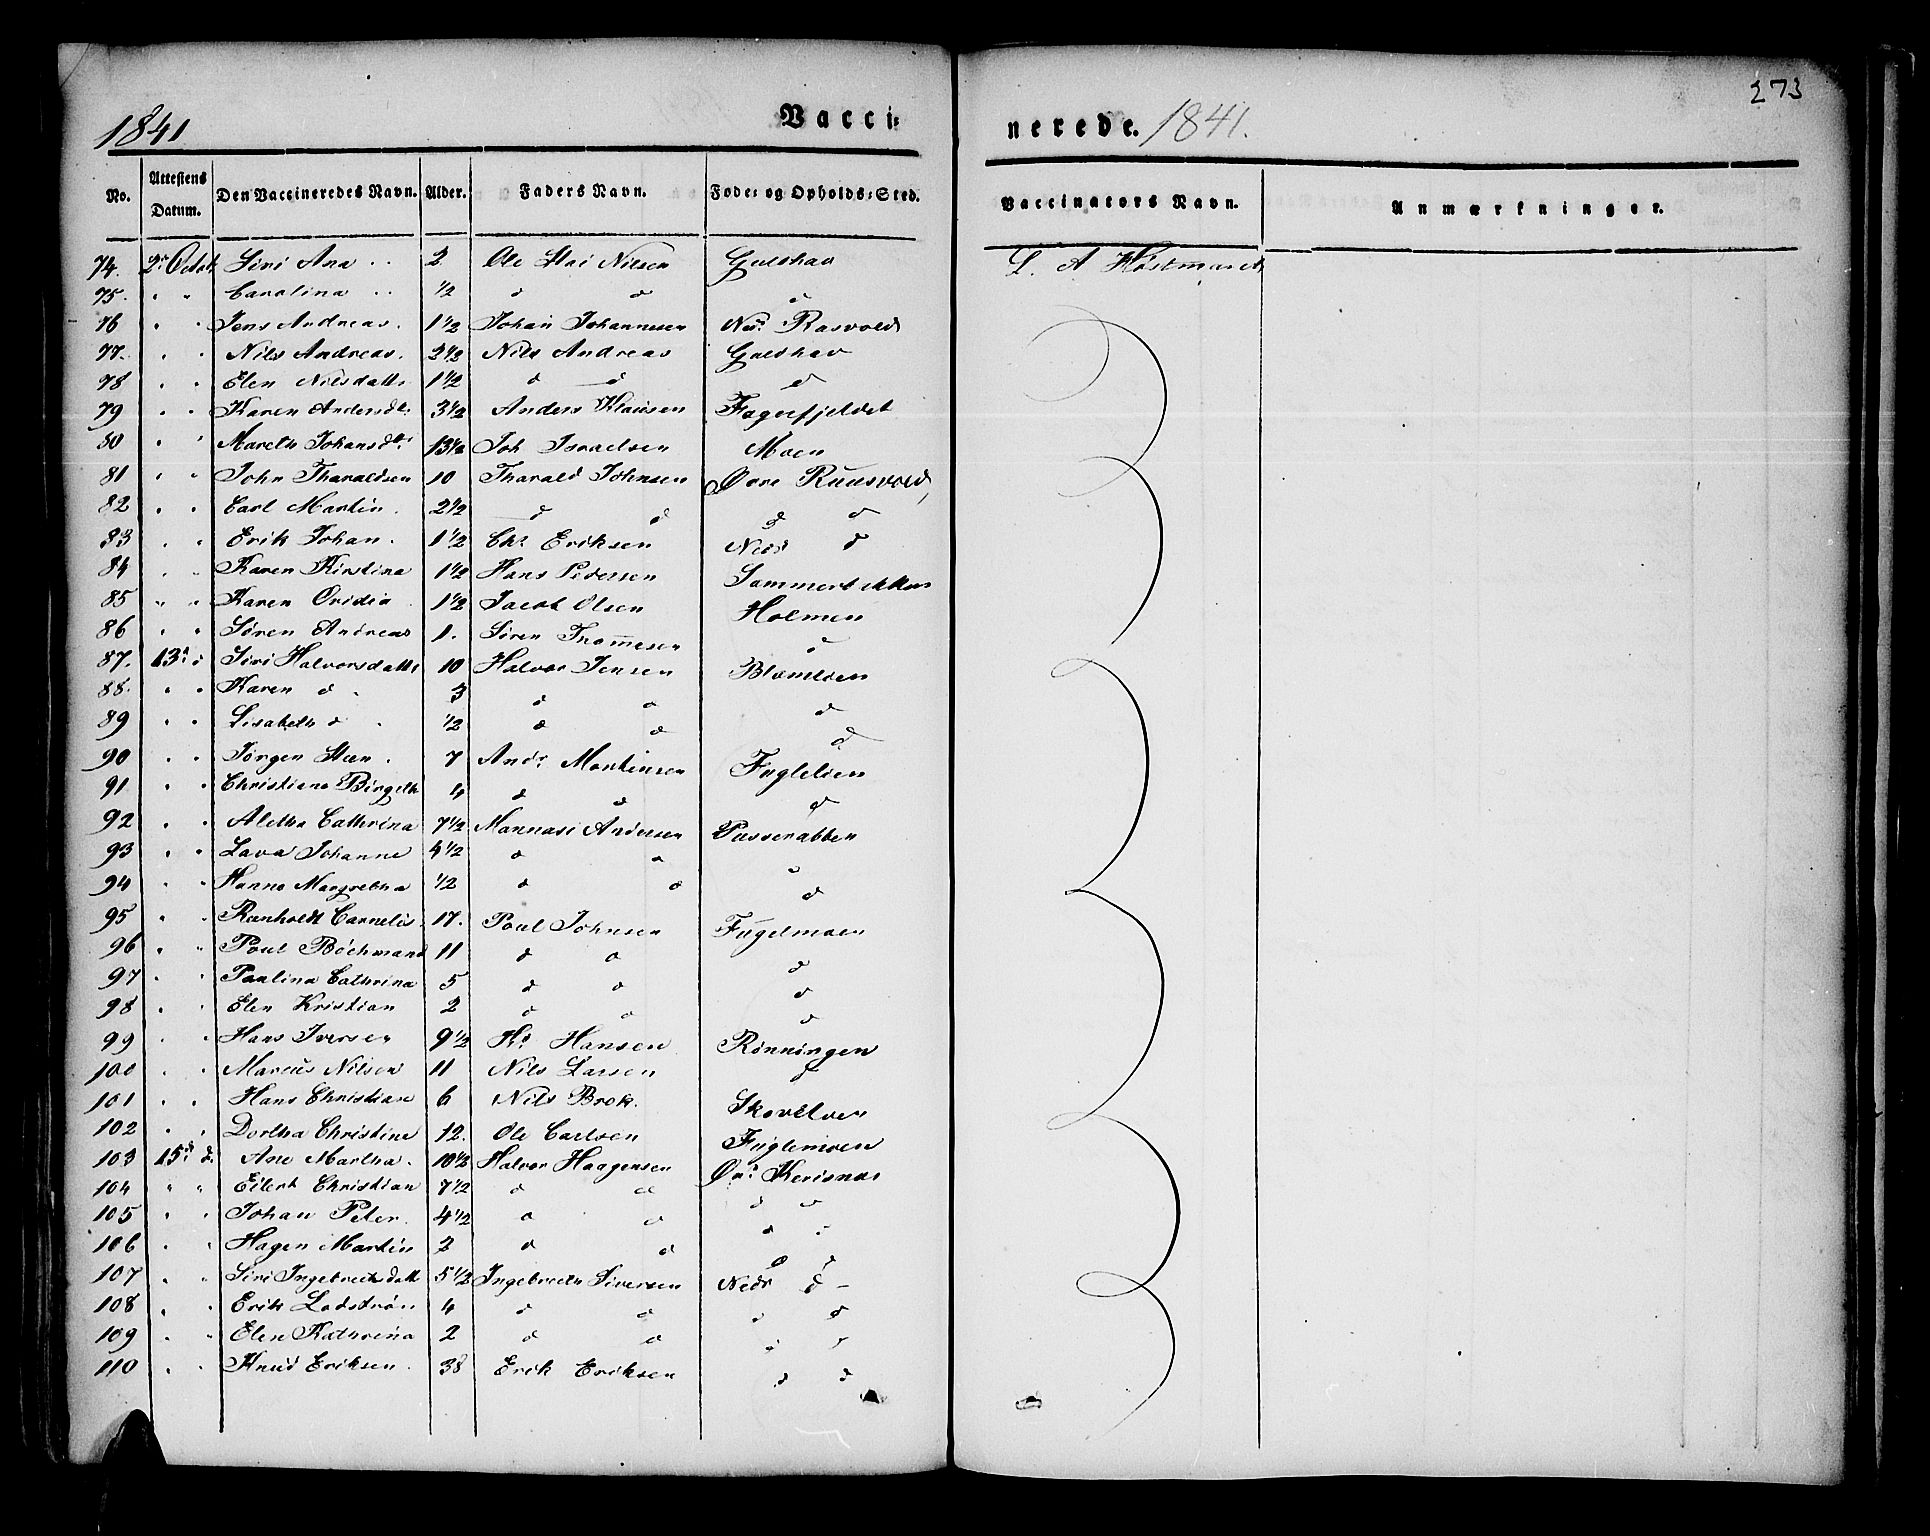 273
1841 Vacci⸗ nerede. 1841.
No. Attestens Datum. Den Vaccineredes Navn. Alder. Faders Navn. Føde⸗ og Opholds⸗Sted. Vaccinators Navn. Anmærkninger.
74. 2 Octob Siri Ana 2 Ole Nilsen L. A
75. " " Carolina ½ d d d
76 " " Jens Andreas. 1½ Johan Johannesen Nedr Rasvold
77. " " Nils Andreas. 2½ Nils Andreas
78 " " Elen Nilsdattr 1½ d d d
79 " " Karen Andersdtr 3½ Anders Klausen Fagerfjeldet
80 " " Mareth Johansdtr 13½ Joh Israelsen Moen
81 " " John Tharaldsen 10 Tharald Johnsen Øvre
82 " " Carl Martin. 2½ d d d d
83 " " Erik Johan. 1½ Chr Eriksen Nedr d
84 " " Karen Kirstina 1½ Hans Pedersen
85 " " Karen Ovidia 1½ Jacob Olsen Holmen
86 " " Søren Andreas 1. Søren Thommesen d
87. 13 d Siri Halvorsdattr 10 Halvor Jensen
88. " " Karen d 3 d d d
89 " " Lisabeth d ½ d d d
90 " " Jørgen 7 Andr Martinsen Fuglelien
91 " " Christiane Birgeth 4 d d d
92 " " Aletha Cathrina 7½ Mannasi Andersen
93 " " Lava Johanne 4½ d d d
94 " " Hanna Margretha ½ d d d
95 " " 17. Poul Johnsen Fugelmoen
96 " " Poul 11 d d d
97 " " Paulina Cathrina 5 d d d
98 " " Elen Kristian 2 d d d
99 " " Hans Iversen 9½ Hansen Rønningen
100 " " Marcus Nilsen 11 Nils Larsen d
101 " " Hans Christian 6 Nils Brok. Skovelven
102 " " Dortha Christine 12. Ole Carlsen Fuglemoen
103 15 d. Ane Martha. 10½ Halvor Haagensen
104 " " Eilert Christian 7½ d d d d
105 " " Johan Peter. 4½ d d d
106 " " Hagen Martin 2 d d d d
107 " " Siri Ingebrectsdatt 5½ Ingebrecth Siversen Nedr d
108 " " Erik 4 d d d
109 " " Elen Kathrina 2 d d d
110 " " Knud Eriksen. 38 Erik Eriksen d d